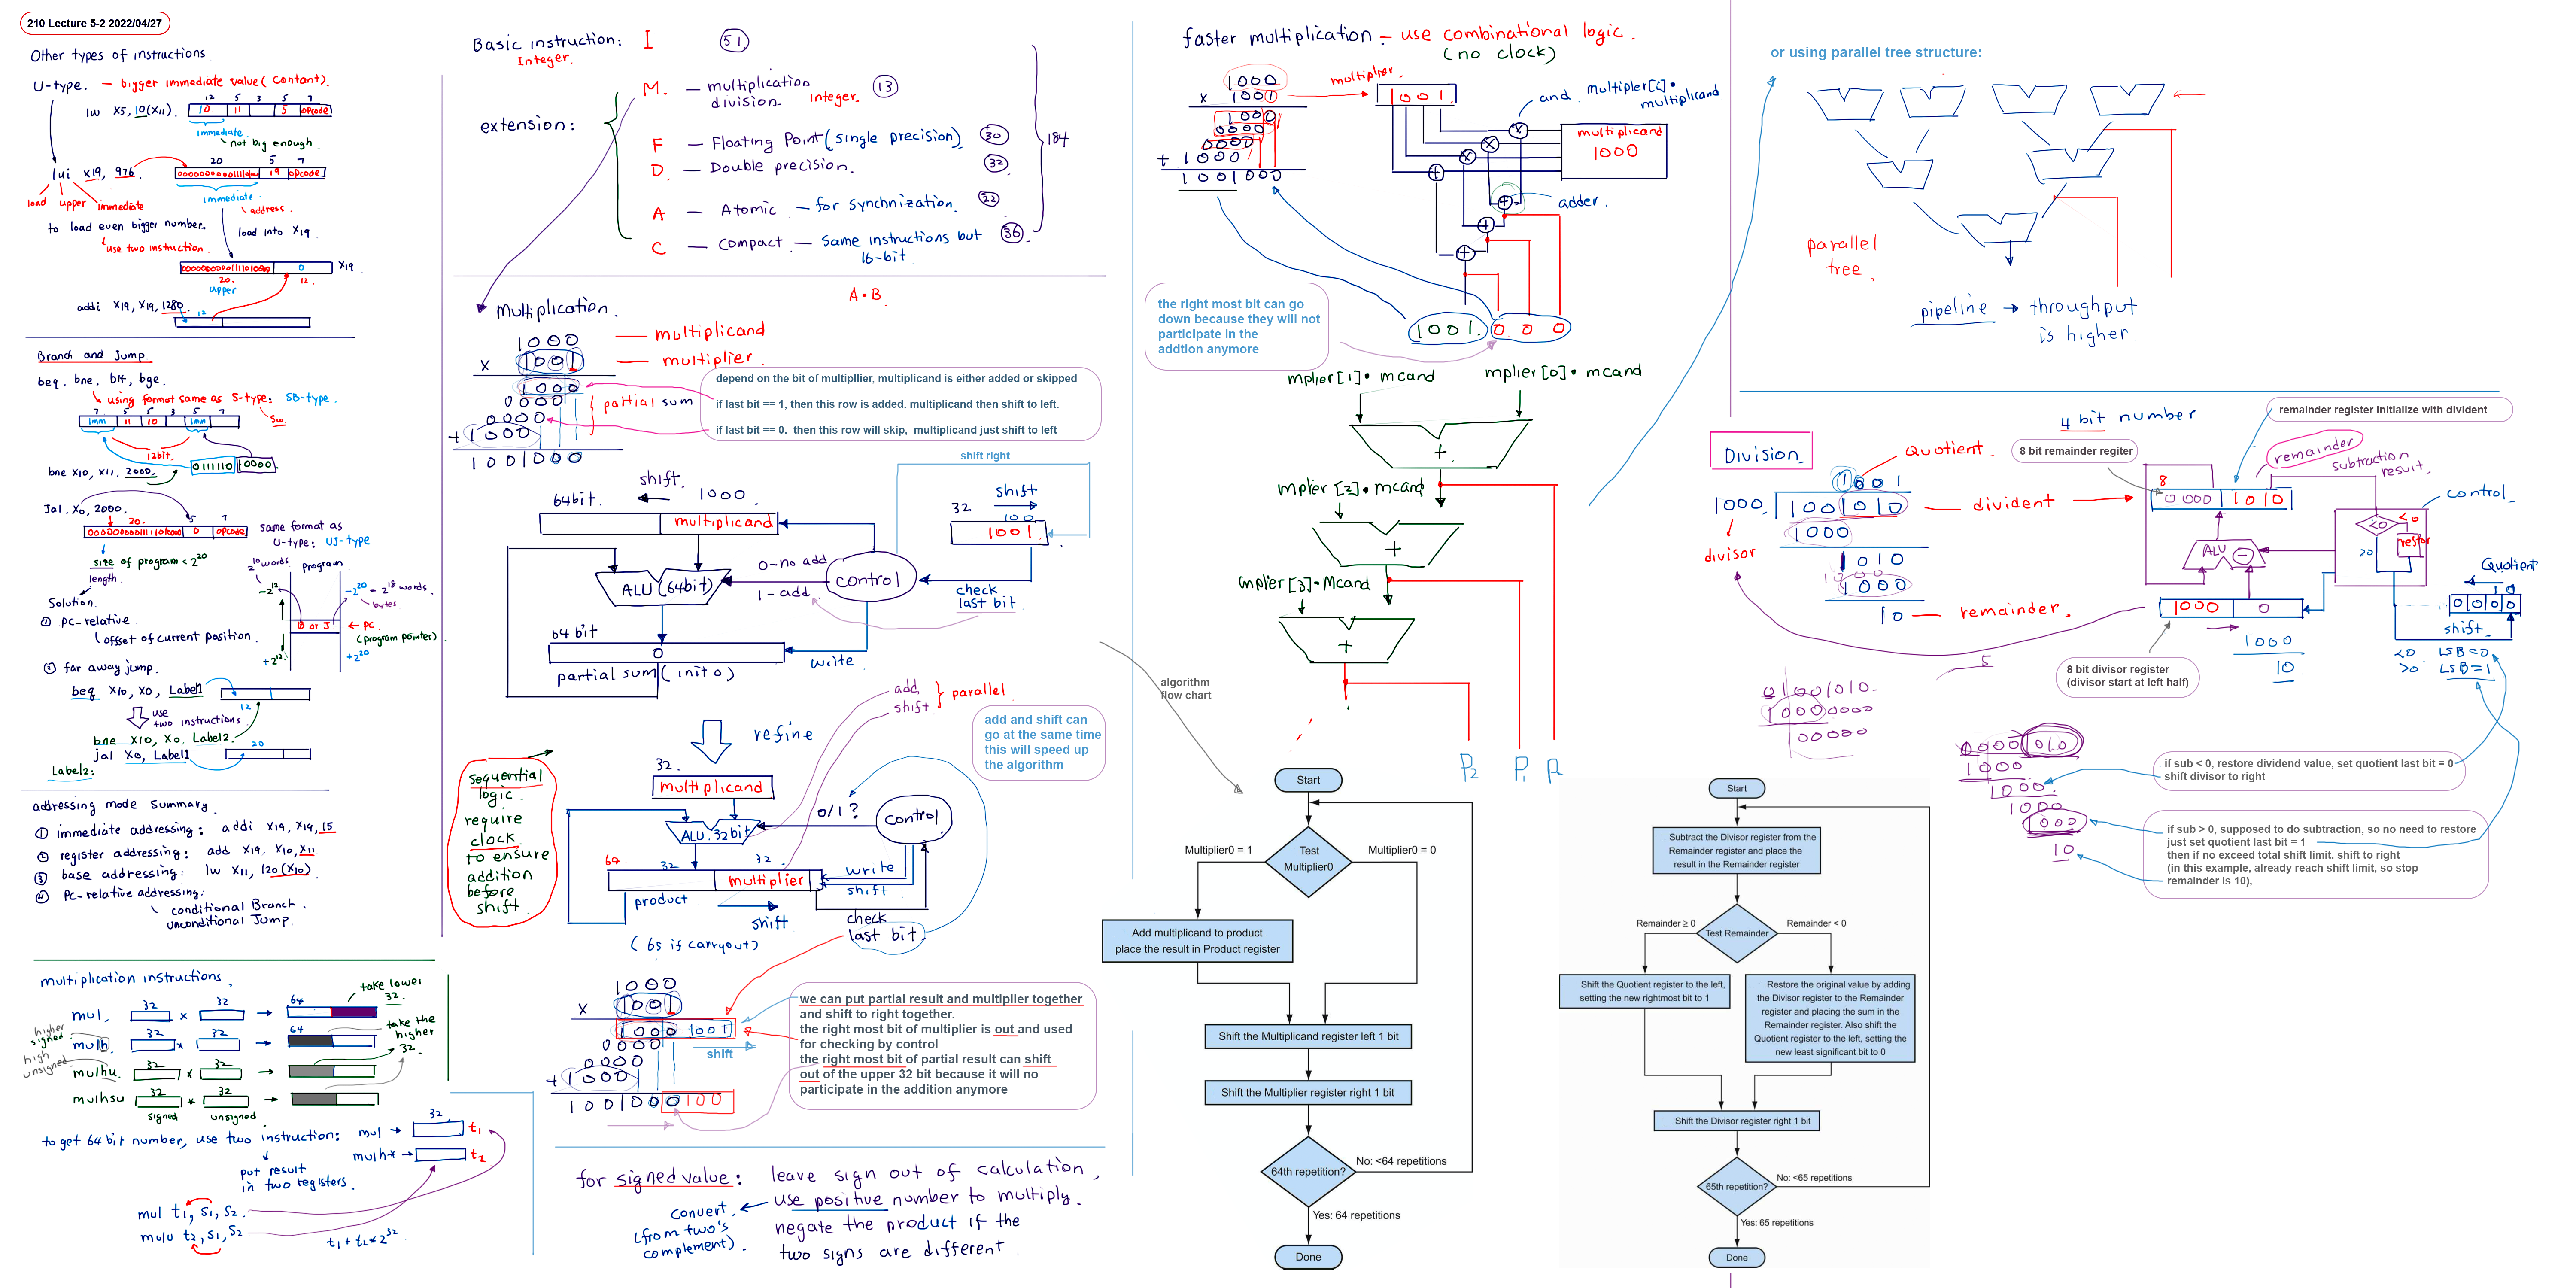 210 Lecture 5-2 2022/04/27
Other types of instructions
U-type. — bigger immediate value ( Contant).
12 5 3 5 7
lw x5, 10(x11) 10 11 5 opcode
immediate
not big enough.
20 5 7
lui x19, 976. 19 opcode
load upper immediate
immediate
address.
to load even bigger number.
use two instruction.
load into x19
0 x19
20. 12
upper
addi x19, x19, 1280
12
Branch and Jump
beq, bne, blt, bge.
using format same as S-type: SB-type.
7 5 5 3 5 7
Imm 11 10 Imm
sw
12bit.
bne x10, x11, 2000 011110 10000
Jal x0, 2000.
20. 5 7
0 opcode
same format as
U-type: UJ-type
size of program < 2^20
length
Solution.
① PC-relative
offset of current position.
2^10 words program
-2^12 -2^20 = 2^18 words.
bytes
B or J ← PC
(program pointer)
+2^12 +2^20
② far away jump.
beq x10, x0, Label1
12
use
two instructions
bne x10, x0, Label2.
jal x0, Label1
20
Label2:
addressing mode summary.
① immediate addressing: addi x19, x19, 15
② register addressing: add x19, x10, x11
③ base addressing: lw x11, 120(x10)
④ PC-relative addressing:
conditional Branch.
unconditional Jump
multiplication instructions
mul. 32 x 32 → 64
take lower
32.
higher
signed
mulh. 32 x 32 → 64
take the
higher
32.
high
unsigned
mulhu. 32 x 32 →
mulhsu 32 * 32 →
signed unsigned
to get 64 bit number, use two instruction: mul → 32 t1
mulh* → t2
put result
in two registers.
mul t1, s1, s2.
mulu t2, s1, s2
t1 + t2 * 2^32
Basic instruction: I 51
Integer.
extension:
M. — multiplication 13
division. integer.
F — Floating Point (single precision) 30
D. — Double precision. 32
A — Atomic — for synchnization. 22
C — compact — same instructions but 36
16-bit
184
A·B
Multiplication.
1000 — multiplicand
x 1001 — multiplier.
1000
0000
0000
+ 1000
1001000
partial sum
depend on the bit of multipllier, multiplicand is either added or skipped
if last bit == 1, then this row is added. multiplicand then shift to left.
if last bit == 0. then this row will skip, multiplicand just shift to left
shift right
shift. 1000
64bit.
multiplicand
shift
32 100
1001
0-no add
1-add
control
ALU (64bit)
check
last bit
64 bit
0
write
partial sum (init 0)
add
shift } parallel
refine
add and shift can
go at the same time
this will speed up
the algorithm
sequential
logic.
require
clock
to ensure
addition
before
shift
32.
multiplicand
0/1 ?
control
ALU. 32bit
64 32 32.
multiplier
write
shift
product shift
check
last bit
(65 if carryout)
1000
x 1001
1000 1001
0000
0000
+ 1000
1001000 100
shift
we can put partial result and multiplier together
and shift to right together.
the right most bit of multiplier is out and used
for checking by control
the right most bit of partial result can shift
out of the upper 32 bit because it will no
participate in the addition anymore
for signed value: leave sign out of calculation,
use positive number to multiply.
negate the product if the
two signs are different.
convert.
(from two's
complement).
faster multiplication — use combinational logic.
(no clock)
1000
x 1001
1000
0000
0000
+ 1000
1001000
multiplier.
1001.
and. multipler[i]·
multiplicand
multiplicand
1000
adder.
the right most bit can go
down because they will not
participate in the
addtion anymore
1001. 0 0 0
mplier[1]· mcand mplier[0]· mcand
+
mplier[2]·mcand
+
mplier[3]·Mcand
+
P2 P1
algorithm
flow chart
Start
Test
Multiplier0
Multiplier0 = 1
Multiplier0 = 0
Add multiplicand to product
place the result in Product register
Shift the Multiplicand register left 1 bit
Shift the Multiplier register right 1 bit
64th repetition?
No: <64 repetitions
Yes: 64 repetitions
Done
or using parallel tree structure:
parallel
tree
pipeline → throughput
is higher
4 bit number
remainder register initialize with divident
Division
Quotient.
8 bit remainder regiter
remainder
subtraction
result.
1001
1000. 1001010 — divident
1000
1010
1000
10 — remainder.
divisor
8
0000 1010
ALU −
control
<0
>0
restor
Quotient
0000
shift
<0 LSB=0
>0 LSB=1
1000 0
1000
10
8 bit divisor register
(divisor start at left half)
01001010
10000000
100000
0000 1010
1000
1000.
1000
1000
10
if sub < 0, restore dividend value, set quotient last bit = 0
shift divisor to right
if sub > 0, supposed to do subtraction, so no need to restore
just set quotient last bit = 1
then if no exceed total shift limit, shift to right
(in this example, already reach shift limit, so stop
remainder is 10),
Start
Subtract the Divisor register from the
Remainder register and place the
result in the Remainder register
Remainder ≥ 0
Remainder < 0
Test Remainder
Shift the Quotient register to the left,
setting the new rightmost bit to 1
Restore the original value by adding
the Divisor register to the Remainder
register and placing the sum in the
Remainder register. Also shift the
Quotient register to the left, setting the
new least significant bit to 0
Shift the Divisor register right 1 bit
65th repetition?
No: <65 repetitions
Yes: 65 repetitions
Done